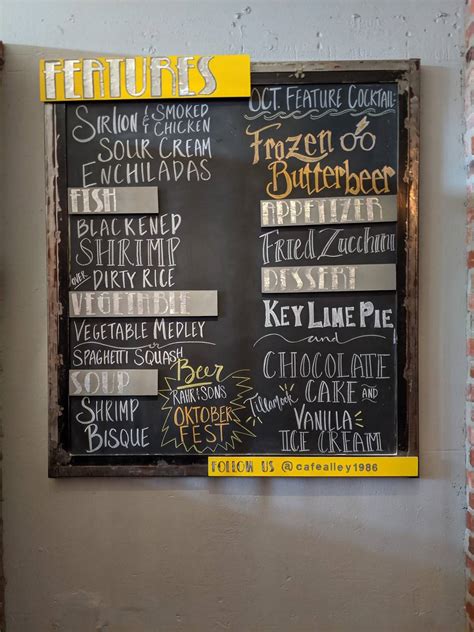 FEATURES
SIRLION & SMOKED
& CHICKEN
SOUR CREAM
ENCHILADAS
FISH
BLACKENED
SHRIMP
OVER DIRTY RICE
VEGETABLE
VEGETABLE MEDLEY
or
SPAGHETTI SQUASH
SOUP
SHRIMP
BISQUE
Beer
RAHR & SONS
OKTOBER
FEST
OCT. FEATURE COCKTAIL:
Frozen
Butterbeer
APPETIZER
Fried Zucchini
DESSERT
KEY LIME PIE
and
CHOCOLATE
CAKE AND
Tillamook
VANILLA
ICE CREAM
FOLLOW US @cafealley1986